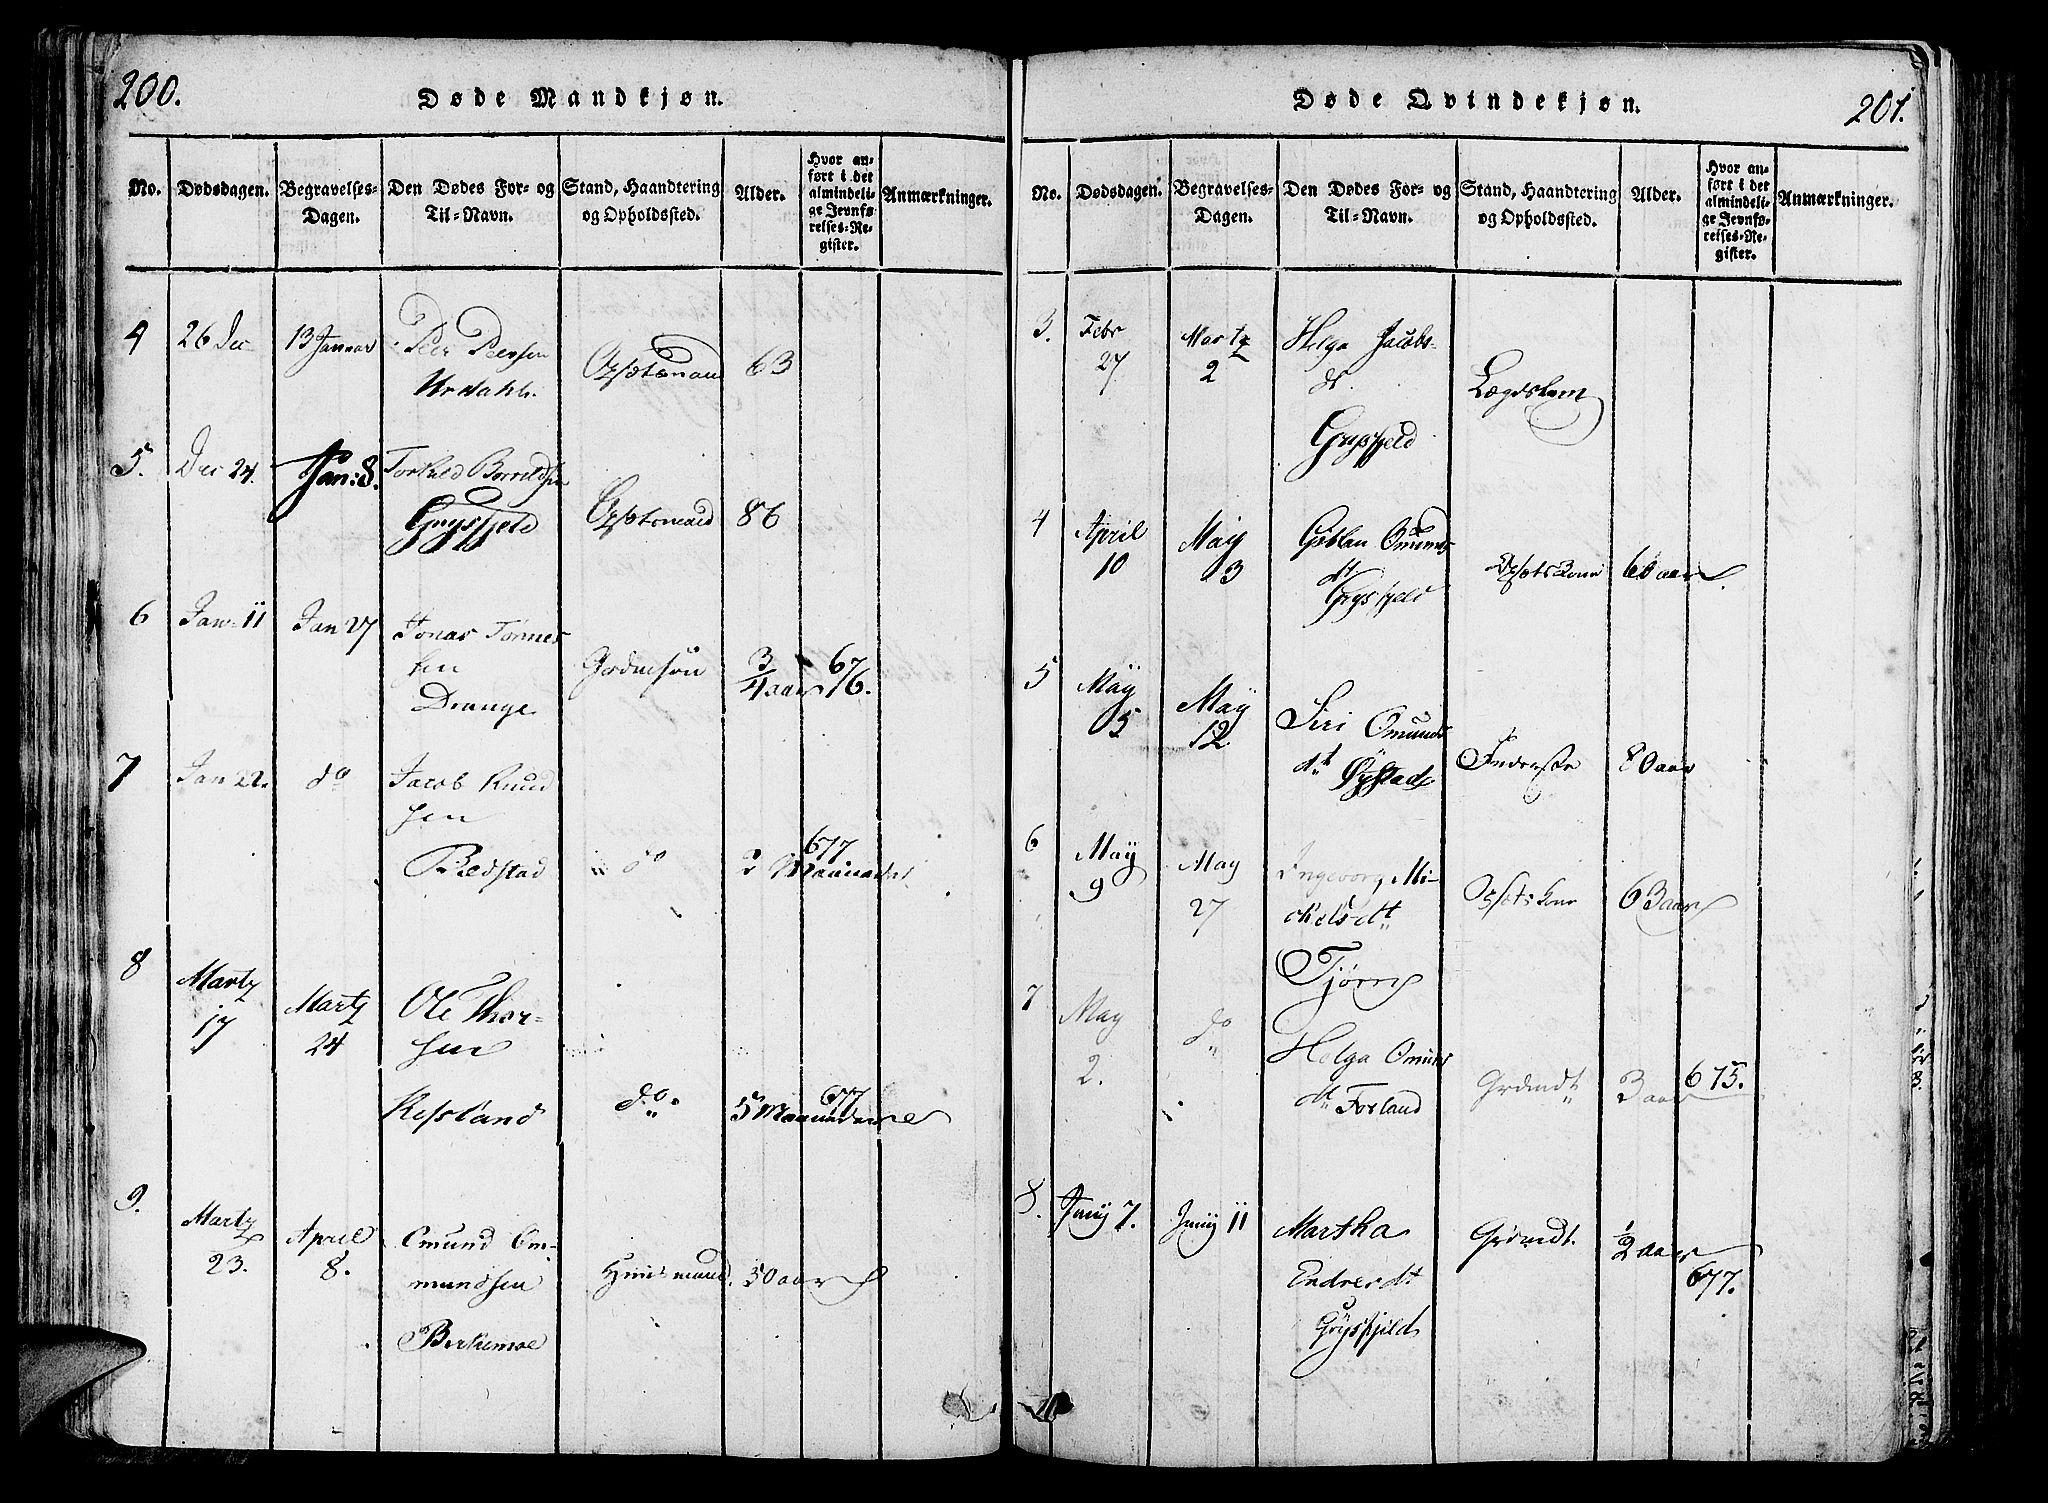 200.
Døde Mandkjøn.
No.
Dødsdagen.
Begravelses-
Dagen.
Den Dødes For- og
Til-Navn.
Stand, Haandtering
og Opholdssted.
Alder.
Hvor an-
ført i det
almindeli-
ge Jevnfø-
relses-Re-
gister.
Anmærkninger.
4
26 Dec
13 Januar
Peer Peersen
Urdahl.
Opsotsmand
63
5.
Dec 24.
Jan: 8.
Torkild Borrildsen
Grysfjeld
Opsotsmand
86
6
Jan 11
Jan 27
Jonas Tønnes
sen
Drange
Grdmsøn
3/4 aar
676.
7
Jan 22.
do
Jacob Knud
sen
Birdstad
do
2 Maaneder
677
8
Martz
17
Martz
24
Ole Thor-
sen
Refsland
do
5 Maaneder
677
9.
Martz
23.
April
8.
Omund Om-
mundsen
Birkemoe
Huusmand.
50 aar
201.
Døde Qvindekjøn.
No.
Dødsdagen.
Begravelses-
Dagen.
Den Dødes For- og
Til-Navn.
Stand, Haandtering
og Opholdssted.
Alder.
Hvor an-
ført i det
almindeli-
ge Jevnfø-
relses-Re-
gister.
Anmærkninger.
3.
Febr
27
Martz
2
Helga Jacobs-
dt.
Grysfjeld
Lægdslem
4
April
10
May
3
Omunds
dt
Grysfjeld
Opsots Kone
60 aar.
5
May
5
May
12
Siri Omunds
dt Øystad
Inderste
80 aar
6
May
9
May
27
Ingeborg Mi-
ckelsdt
Tjørn
Opsots Kone
63 aar
7
May
2.
do
Helga Omunds
dt Forland
Grdmdt
3 aar
675.
8.
Juny 7.
Juny 11
Martha
Endresdt
Grysfjeld
Grdmdt.
1/2 aar
677.